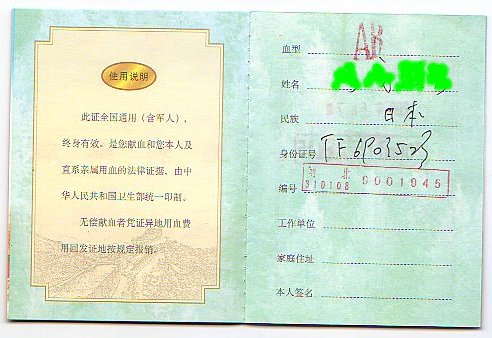 使用说明
此证全国通用（含军人），
终身有效。是您献血和您本人及
直系亲属用血的法律证据。由中
华人民共和国卫生部统一印制。
无偿献血者凭证异地用血费
用回发证地按规定报销。
血型 AB
姓名
民族 日本
身份证号 TF6903523
编号 河北 310108 0001045
工作单位
家庭住址
本人签名